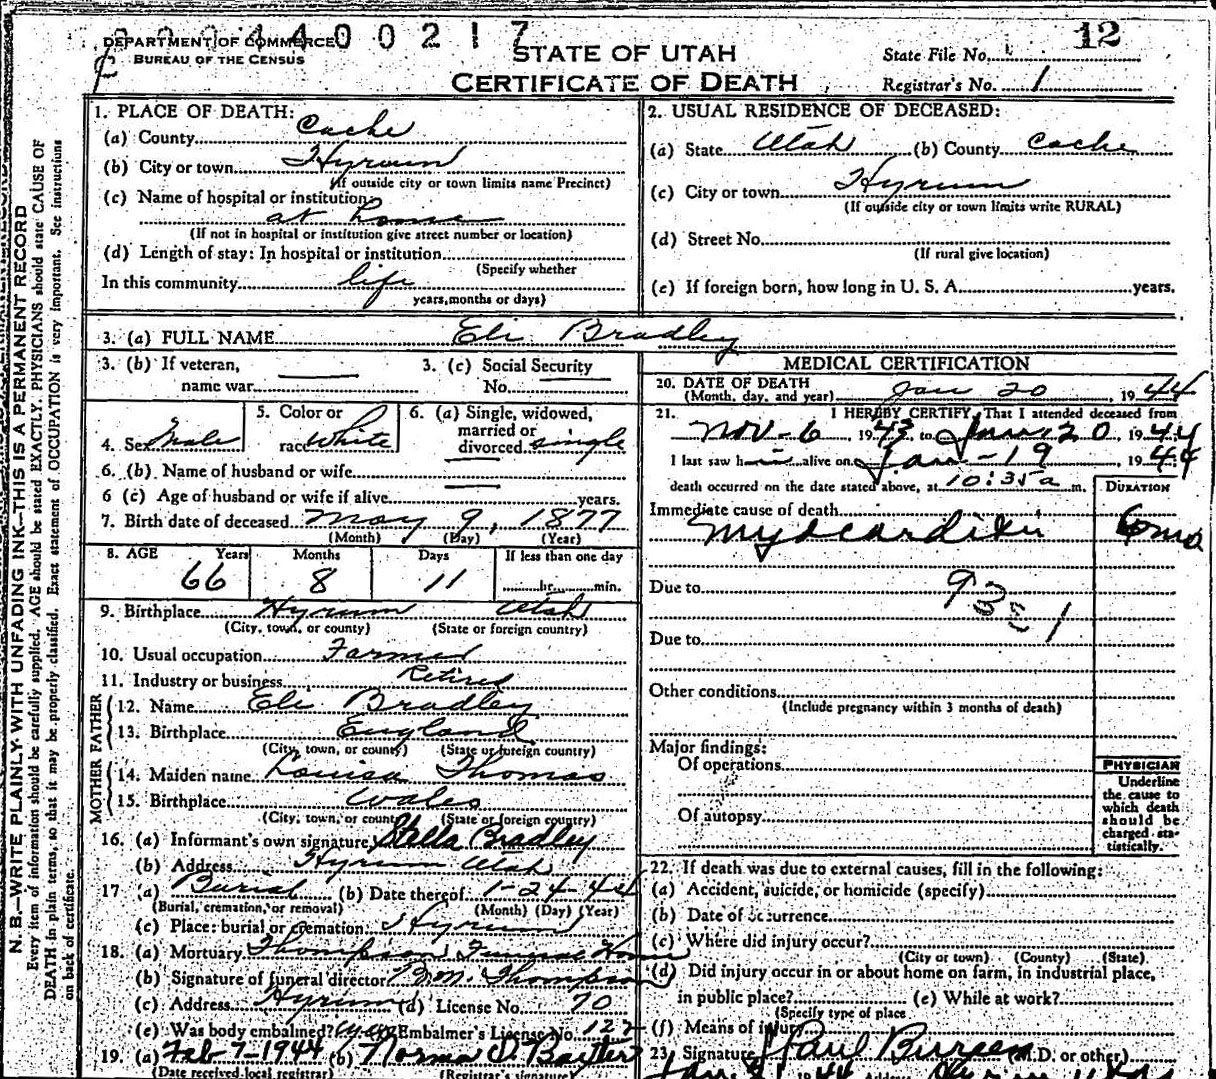 DEPARTMENT OF COMMERCE
BUREAU OF THE CENSUS
400217
STATE OF UTAH
CERTIFICATE OF DEATH
12
State File No.
Registrar's No. 1
N. B.—WRITE PLAINLY WITH UNFADING INK—THIS IS A PERMANENT RECORD
Every item of information should be carefully supplied. AGE should be stated EXACTLY. PHYSICIANS should state CAUSE OF
DEATH in plain terms, so that it may be properly classified. Exact statement of OCCUPATION is very important. See instructions
on back of certificate.
1. PLACE OF DEATH:
(a) County Cache
(b) City or town Hyrum
(If outside city or town limits name Precinct)
(c) Name of hospital or institution
at home
(If not in hospital or institution give street number or location)
(d) Length of stay: In hospital or institution
(Specify whether
In this community life
years, months or days)
2. USUAL RESIDENCE OF DECEASED:
(a) State Utah (b) County Cache
(c) City or town Hyrum
(If outside city or town limits write RURAL)
(d) Street No.
(If rural give location)
(e) If foreign born, how long in U. S. A. years.
3. (a) FULL NAME Eli Bradley
3. (b) If veteran,
name war
3. (c) Social Security
No.
4. Sex Male
5. Color or
race White
6. (a) Single, widowed,
married or
divorced single
6. (b) Name of husband or wife
6 (c) Age of husband or wife if alive years.
7. Birth date of deceased May 9, 1877
(Month) (Day) (Year)
8. AGE Years Months Days If less than one day
66 8 11 hr. min.
9. Birthplace Hyrum Utah
(City, town, or county) (State or foreign country)
10. Usual occupation Farmer
11. Industry or business Retired
FATHER
12. Name Eli Bradley
13. Birthplace England
(City, town, or county) (State or foreign country)
MOTHER
14. Maiden name Louisa Thomas
15. Birthplace Wales
(City, town, or county) (State or foreign country)
16. (a) Informant's own signature Stella Bradley
(b) Address Hyrum Utah
17 (a) Burial (b) Date thereof 1-24-44
(Burial, cremation, or removal) (Month) (Day) (Year)
(c) Place: burial or cremation Hyrum
18. (a) Mortuary Thompson Funeral Home
(b) Signature of funeral director Thompson
(c) Address Hyrum (d) License No. 70
(e) Was body embalmed? yes Embalmer's License No.
19. (a) Feb 7-1944 (b) Norma
(Date received local registrar) (Registrar's signature)
MEDICAL CERTIFICATION
20. DATE OF DEATH
(Month, day, and year) Jan 20 1944
21. I HEREBY CERTIFY, That I attended deceased from
Nov-6, 1943, to Jan. 20 1944
I last saw him alive on Jan-19 1944
death occurred on the date stated above, at 10:35 a m.
DURATION
Immediate cause of death
Myocarditis 6 mo
Due to
93
Due to
Other conditions
(Include pregnancy within 3 months of death)
Major findings:
Of operations
Of autopsy
PHYSICIAN
Underline
the cause to
which death
should be
charged sta-
tistically.
22. If death was due to external causes, fill in the following:
(a) Accident, suicide, or homicide (specify)
(b) Date of occurrence
(c) Where did injury occur?
(City or town) (County) (State)
(d) Did injury occur in or about home on farm, in industrial place,
in public place? (e) While at work?
(Specify type of place
(f) Means of injury
23. Signature Paul Burgen (M.D. or other)